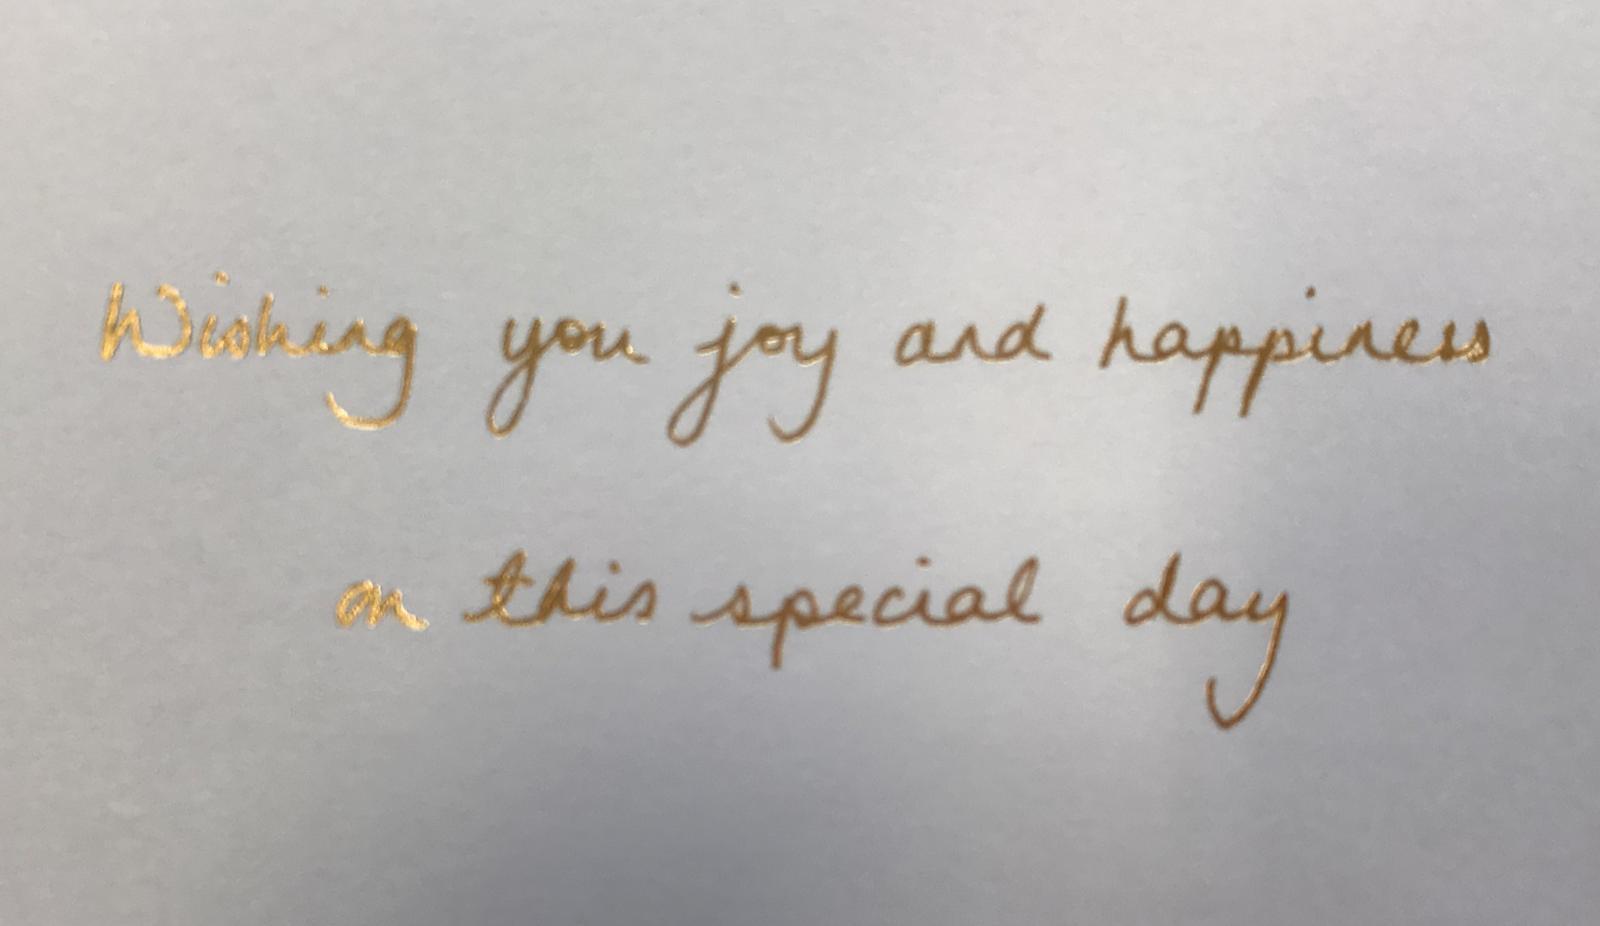 Wishing you joy and happiness
on this special day